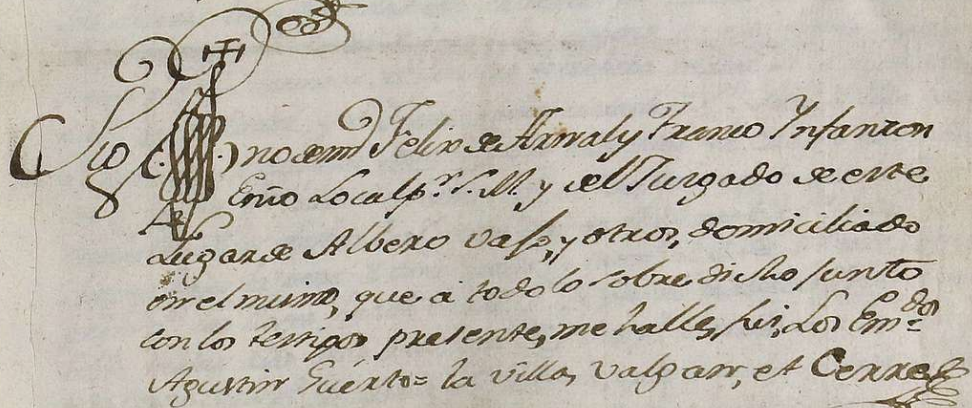 Sig(...)no de mi Felix de Arrral y Franco Ynfanzon
Esno Local pr. S.M. y del Juzgado de este
Lugar de Albero vajo, y otros, domiciliado
en el mismo, que a todo lo sobre dicho junto
con los testigos presente, me halle, fui, Los Emdos
Agustin = la villa, valgan, et Cerre